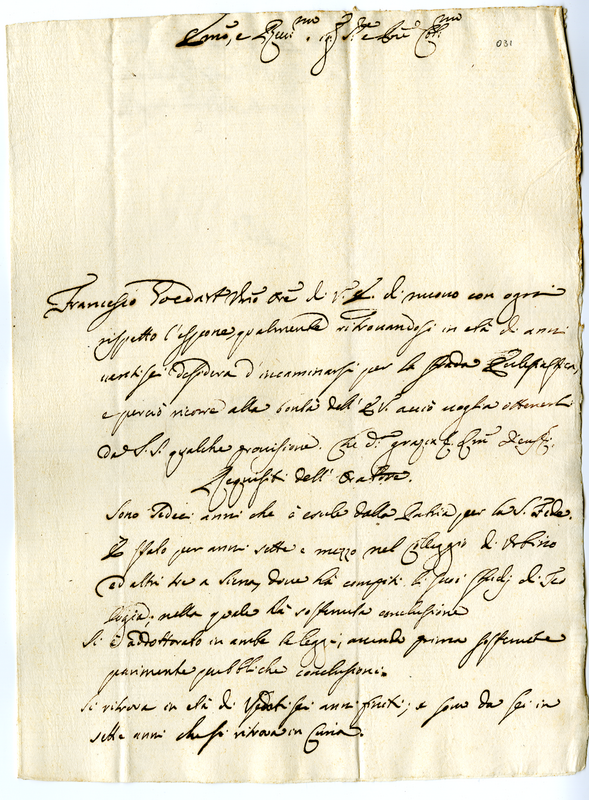 Emo, e Reu.mo
031
Francesco Goddart Umo Ore di V. E. di nuouo con ogni
rispetto l'espone, qualmente ritrouandosi in età di anni
uentisei desidera d'incaminarsi per la strada Ecclesiastica,
e perciò ricorre alla bontà dell' E. V. acciò uoglia ottenerli
da S. S. qualche prouisione. Che
Requisiti dell' Oratore.
Sono sedeci anni che è esule dalla Patria per la S. Fede.
È stato per anni sette e mezzo nel Colleggio di Urbino
ed altri tre a Siena, doue hà compiti li suoi studij di Teo
logia; nella quale hà sostenuta conclusione
Si è addottorato in ambe le leggi, auendo prima sostenute
parimente pubbliche conclusioni.
Si ritroua in età di uentisei anni finiti; e sono da sei in
sette anni che si ritroua in Curia.